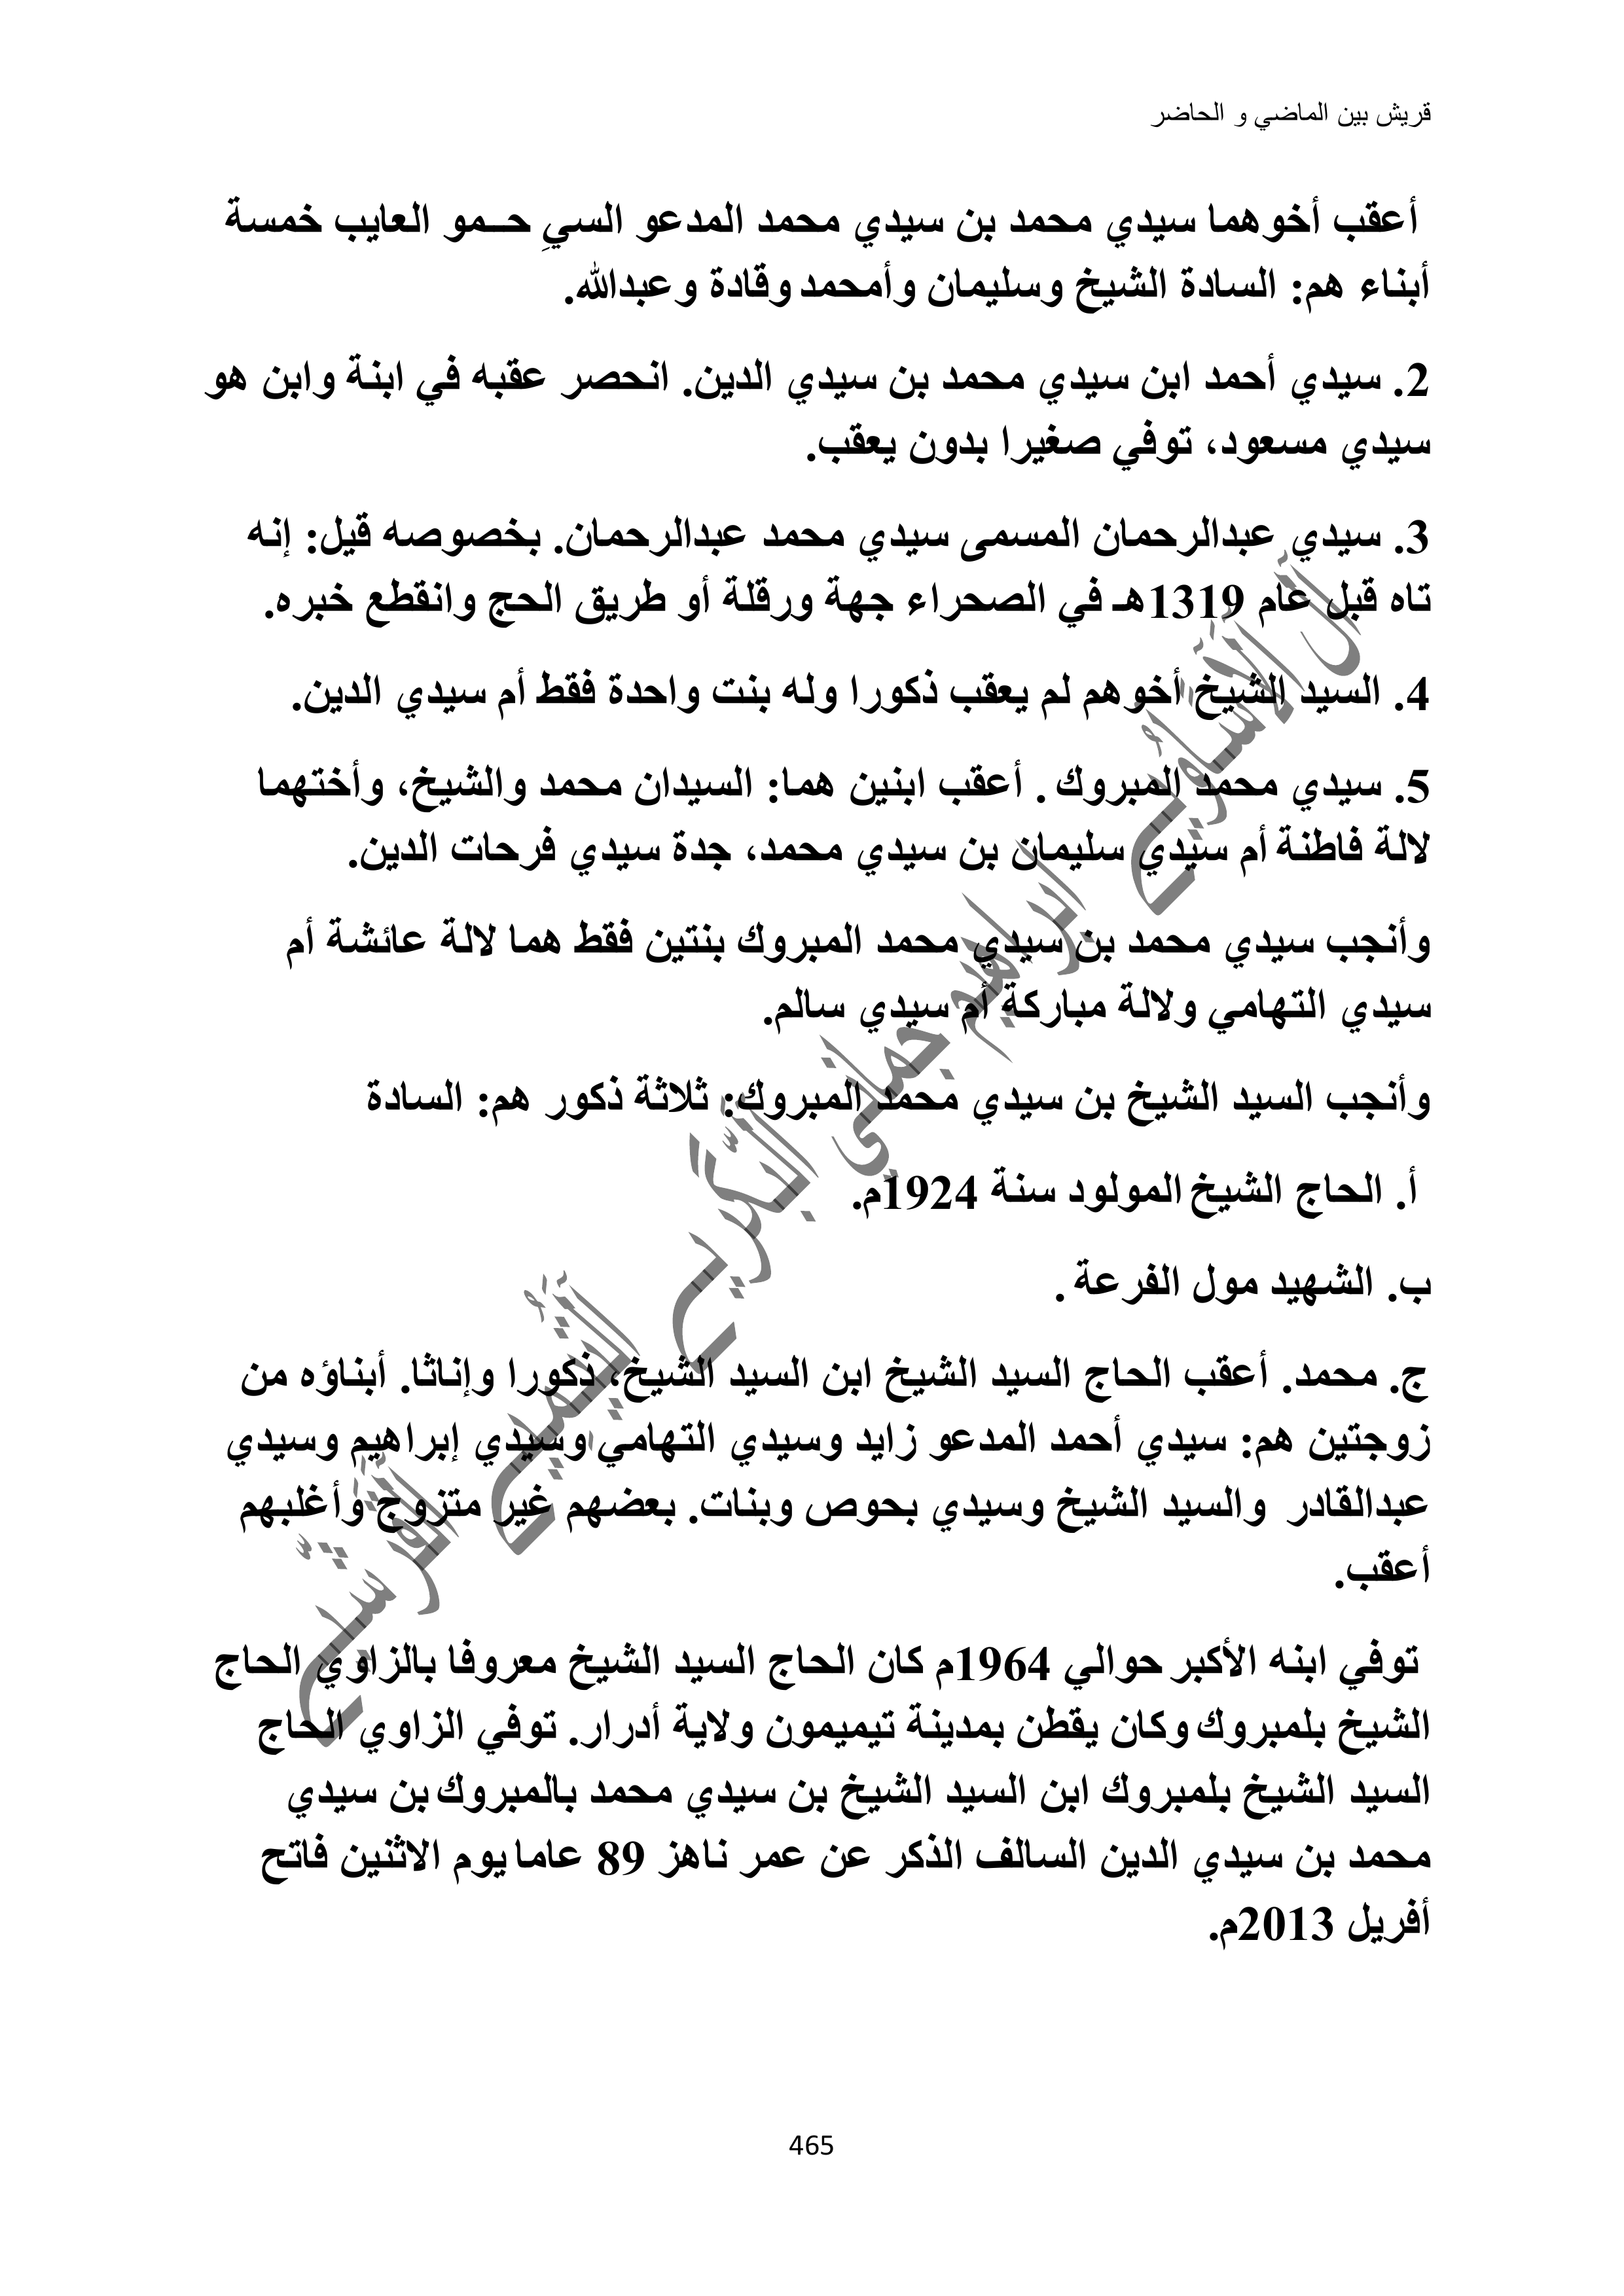 قريش بين الماضي و الحاضر
أعقب أخوهما سيدي محمد بن سيدي محمد المدعو السيِ حـــمو العايب خمسة
أبناء هم: السادة الشيخ وسليمان وأمحمد وقادة وعبدالله.
2. سيدي أحمد ابن سيدي محمد بن سيدي الدين. انحصر عقبه في ابنة وابن هو
سيدي مسعود، توفي صغيرا بدون يعقب.
3. سيدي عبدالرحمان المسمى سيدي محمد عبدالرحمان. بخصوصه قيل: إنه
تاه قبل عام 1319هـ في الصحراء جهة ورقلة أو طريق الحج وانقطع خبره.
4. السيد الشيخ أخوهم لم يعقب ذكورا وله بنت واحدة فقط أم سيدي الدين.
5. سيدي محمد المبروك . أعقب ابنين هما: السيدان محمد والشيخ، وأختهما
لالة فاطنة أم سيدي سليمان بن سيدي محمد، جدة سيدي فرحات الدين.
وأنجب سيدي محمد بن سيدي محمد المبروك بنتين فقط هما لالة عائشة أم
سيدي التهامي ولالة مباركة أم سيدي سالم.
وأنجب السيد الشيخ بن سيدي محمد المبروك: ثلاثة ذكور هم: السادة
أ. الحاج الشيخ المولود سنة 1924م.
ب. الشهيد مول الفرعة .
ج. محمد. أعقب الحاج السيد الشيخ ابن السيد الشيخ، ذكورا وإناثا. أبناؤه من
زوجتين هم: سيدي أحمد المدعو زايد وسيدي التهامي وسيدي إبراهيم وسيدي
عبدالقادر والسيد الشيخ وسيدي بحوص وبنات. بعضهم غير متزوج وأغلبهم
أعقب.
توفي ابنه الأكبر حوالي 1964م كان الحاج السيد الشيخ معروفا بالزاوي الحاج
الشيخ بلمبروك وكان يقطن بمدينة تيميمون ولاية أدرار. توفي الزاوي الحاج
السيد الشيخ بلمبروك ابن السيد الشيخ بن سيدي محمد بالمبروك بن سيدي
محمد بن سيدي الدين السالف الذكر عن عمر ناهز 89 عاما يوم الاثنين فاتح
أفريل 2013م.
465